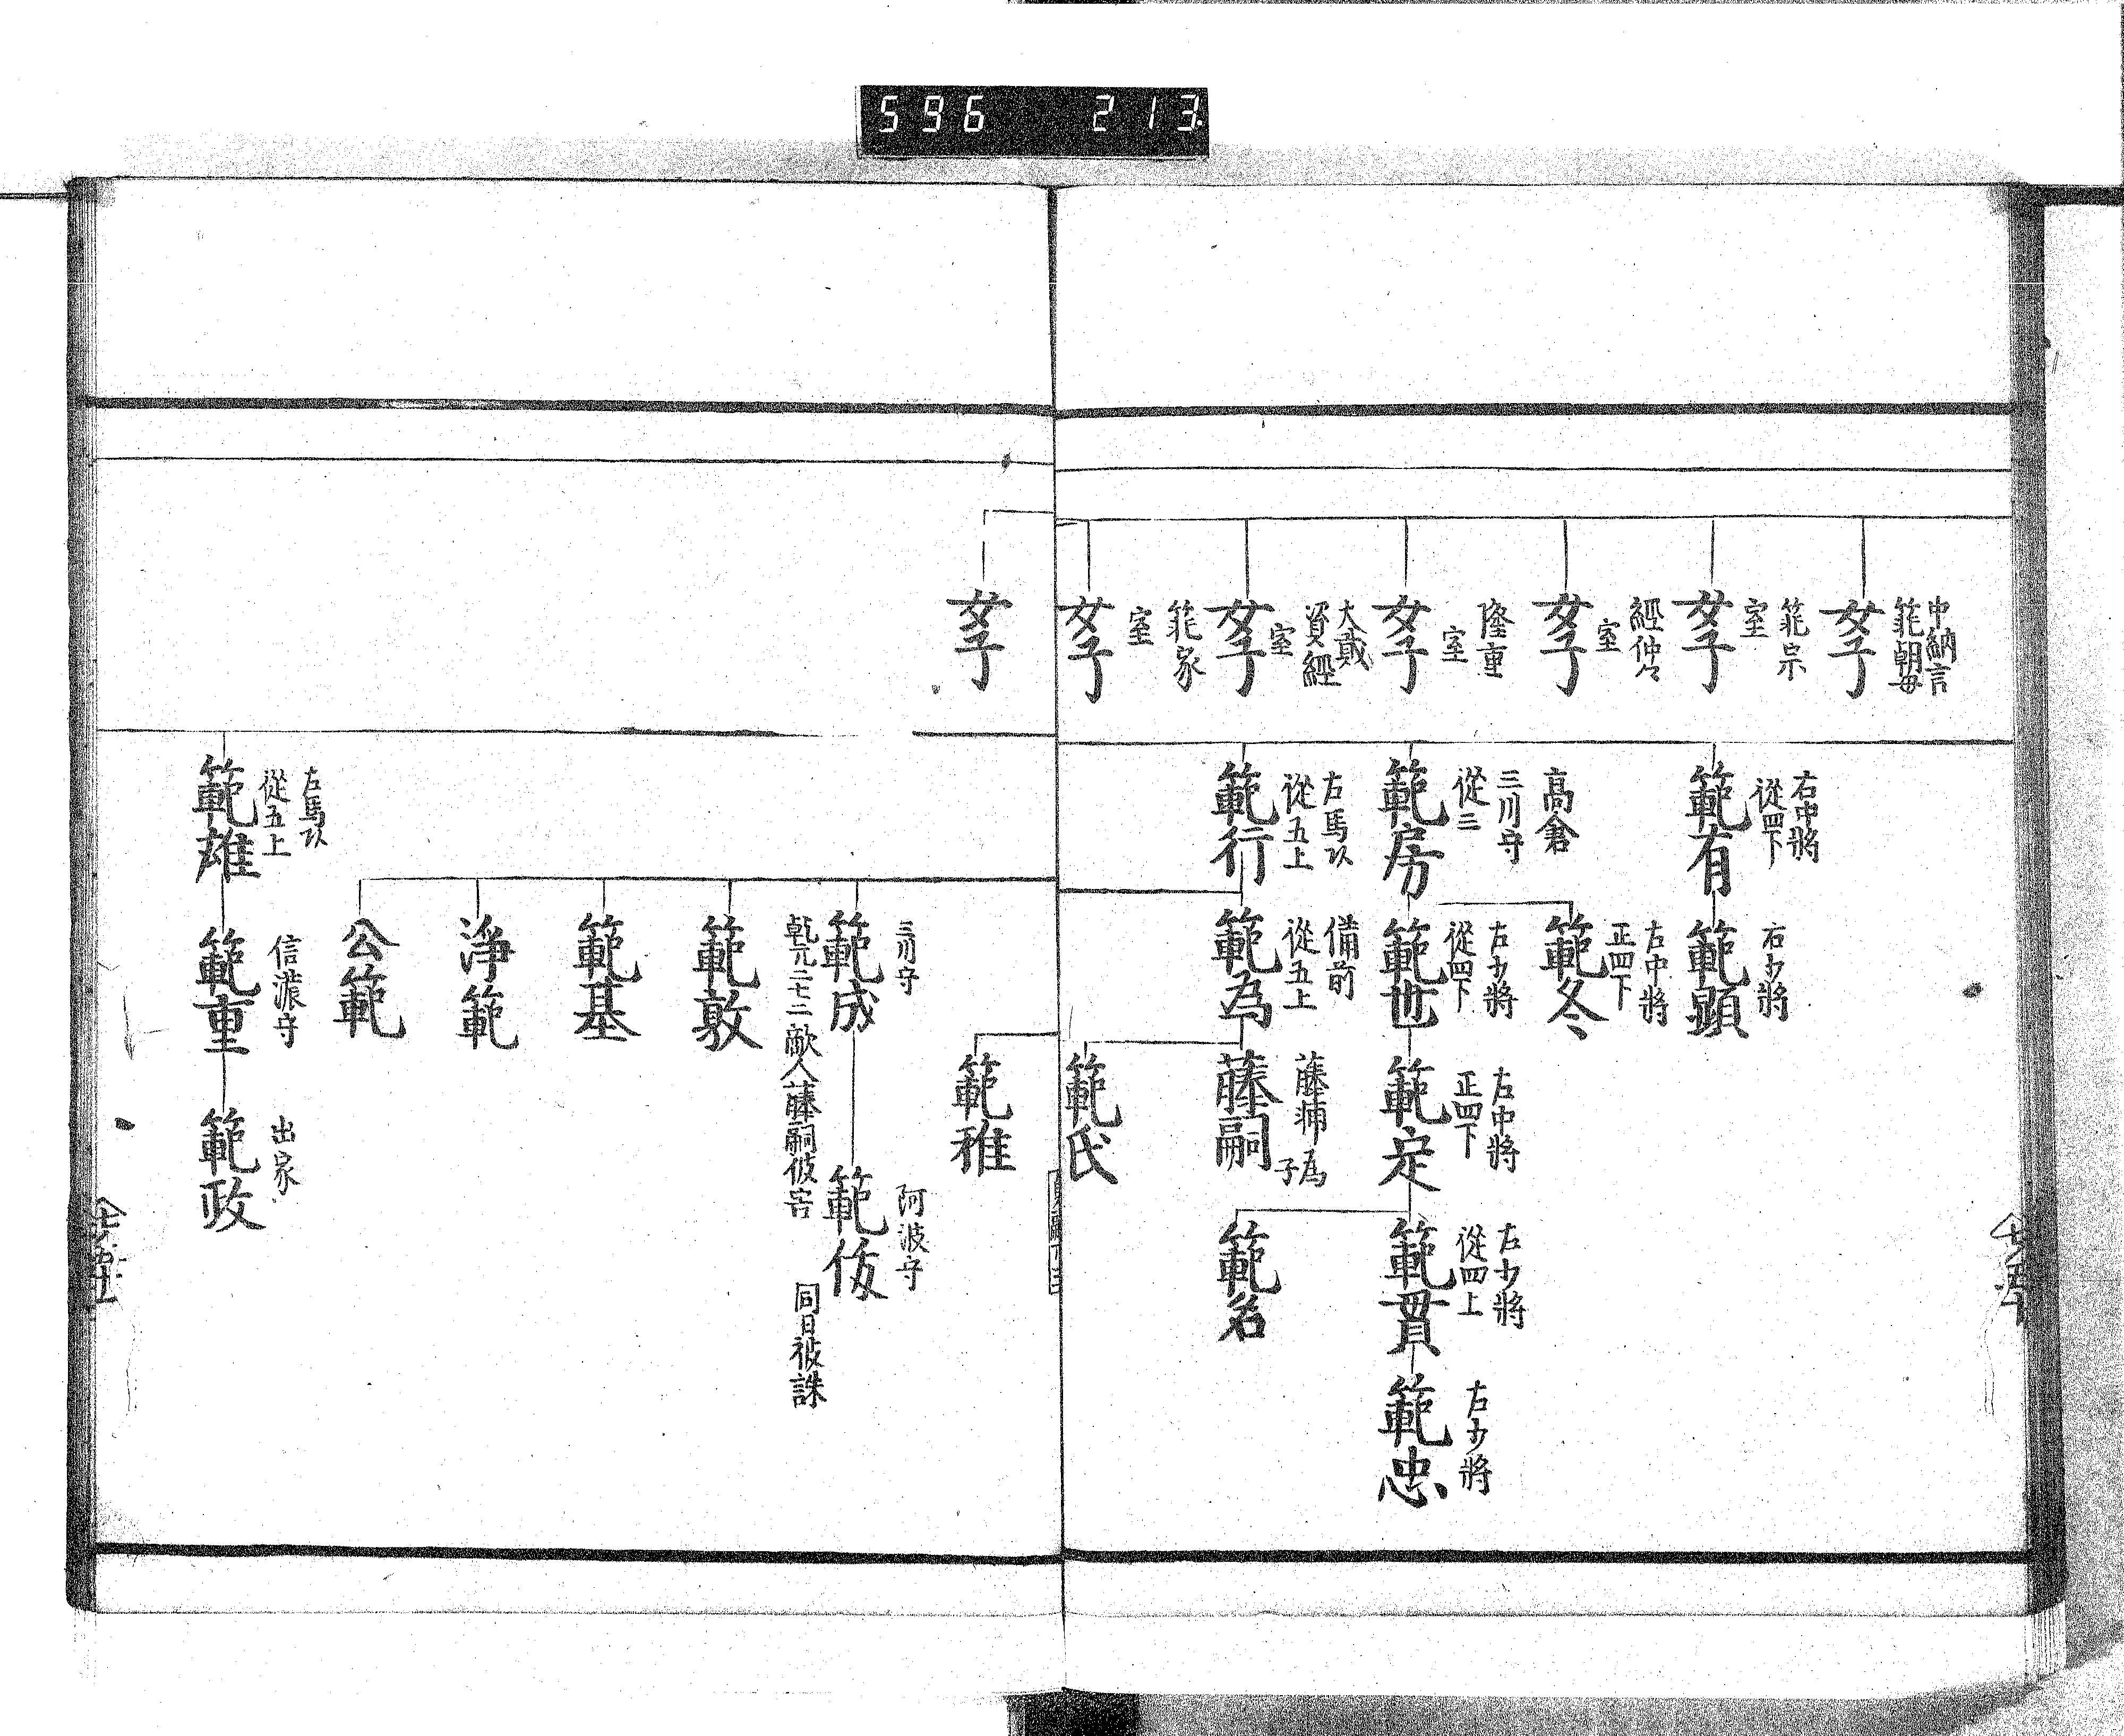 596 213
中納言
範朝母
女子
範宗
室
女子
經仲々
室
女子
隆重
室
女子
大貳
資經
室
女子
範家
室
女子
女子
右中將
從四下
範有
右少將
範顕
高倉
三川守
從三
範房
左中將
正四下
範冬
左少將
從四下
範世
左中將
正四下
範定
左少將
從四上
範貫
左少將
範忠
範名
左馬以
從五上
範行
備前
從五上
範為
藤嗣
範氏
範稚
三川守
範成
乹元二七二敵人藤嗣被害
阿波守
同日被誅
範敦
範基
淨範
公範
左馬以
從五上
範雄
信濃守
範重
出家
範政